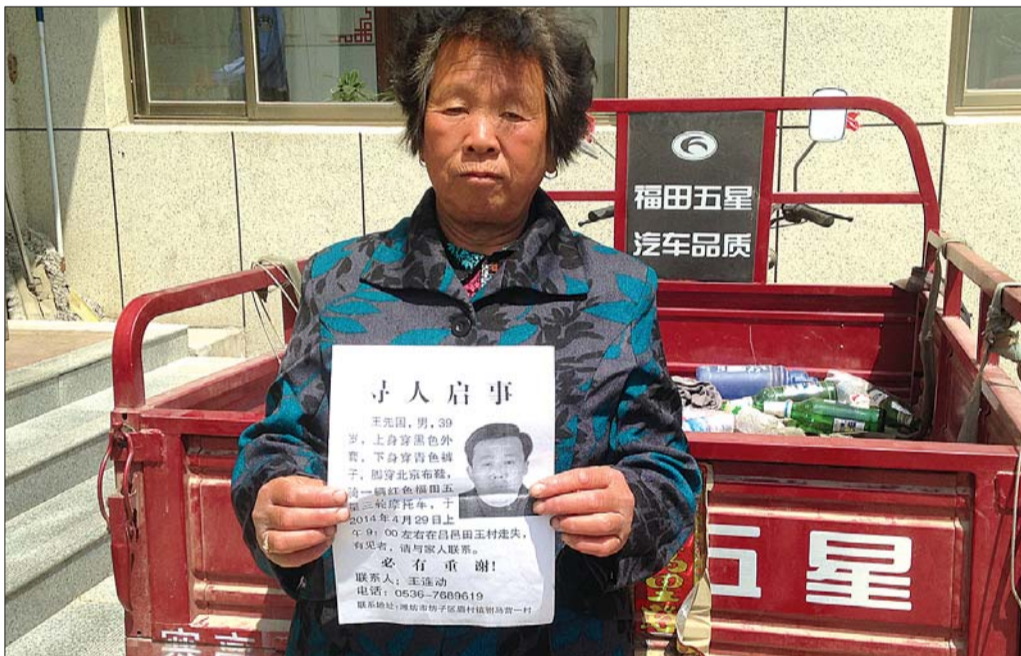 福田五星
汽车品质
寻人启事
王先国，男，39
岁，上身穿黑色外
套，下身穿青色裤
子，脚穿北京布鞋，
骑一辆红色福田五
星三轮摩托车，于
2014年4月29日上
午9：00左右在吕邑田王村走失，
有见者，请与家人联系。
必有重谢！
联系人：王连动
电话：0536-7689619
联系地址：潍坊市坊子区眉村镇钳马营一村
五星